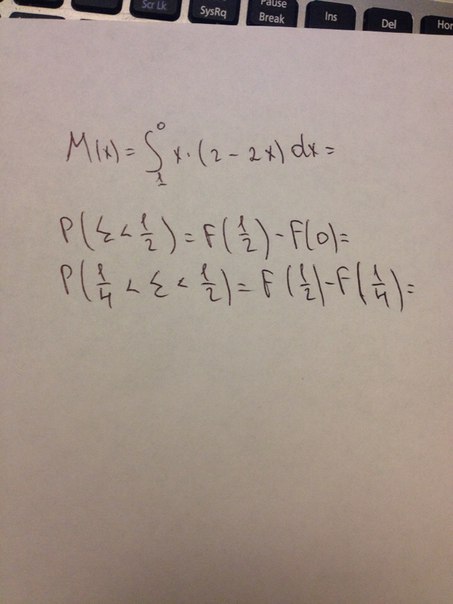 Scr Lk
SysRq
Pause
Break
Ins
Del
M(x) = ∫₁⁰ x · (2 - 2x) dx =
P(ξ < 1/2) = F(1/2) - F(0) =
P(1/4 < ξ < 1/2) = F(1/2) - F(1/4) =